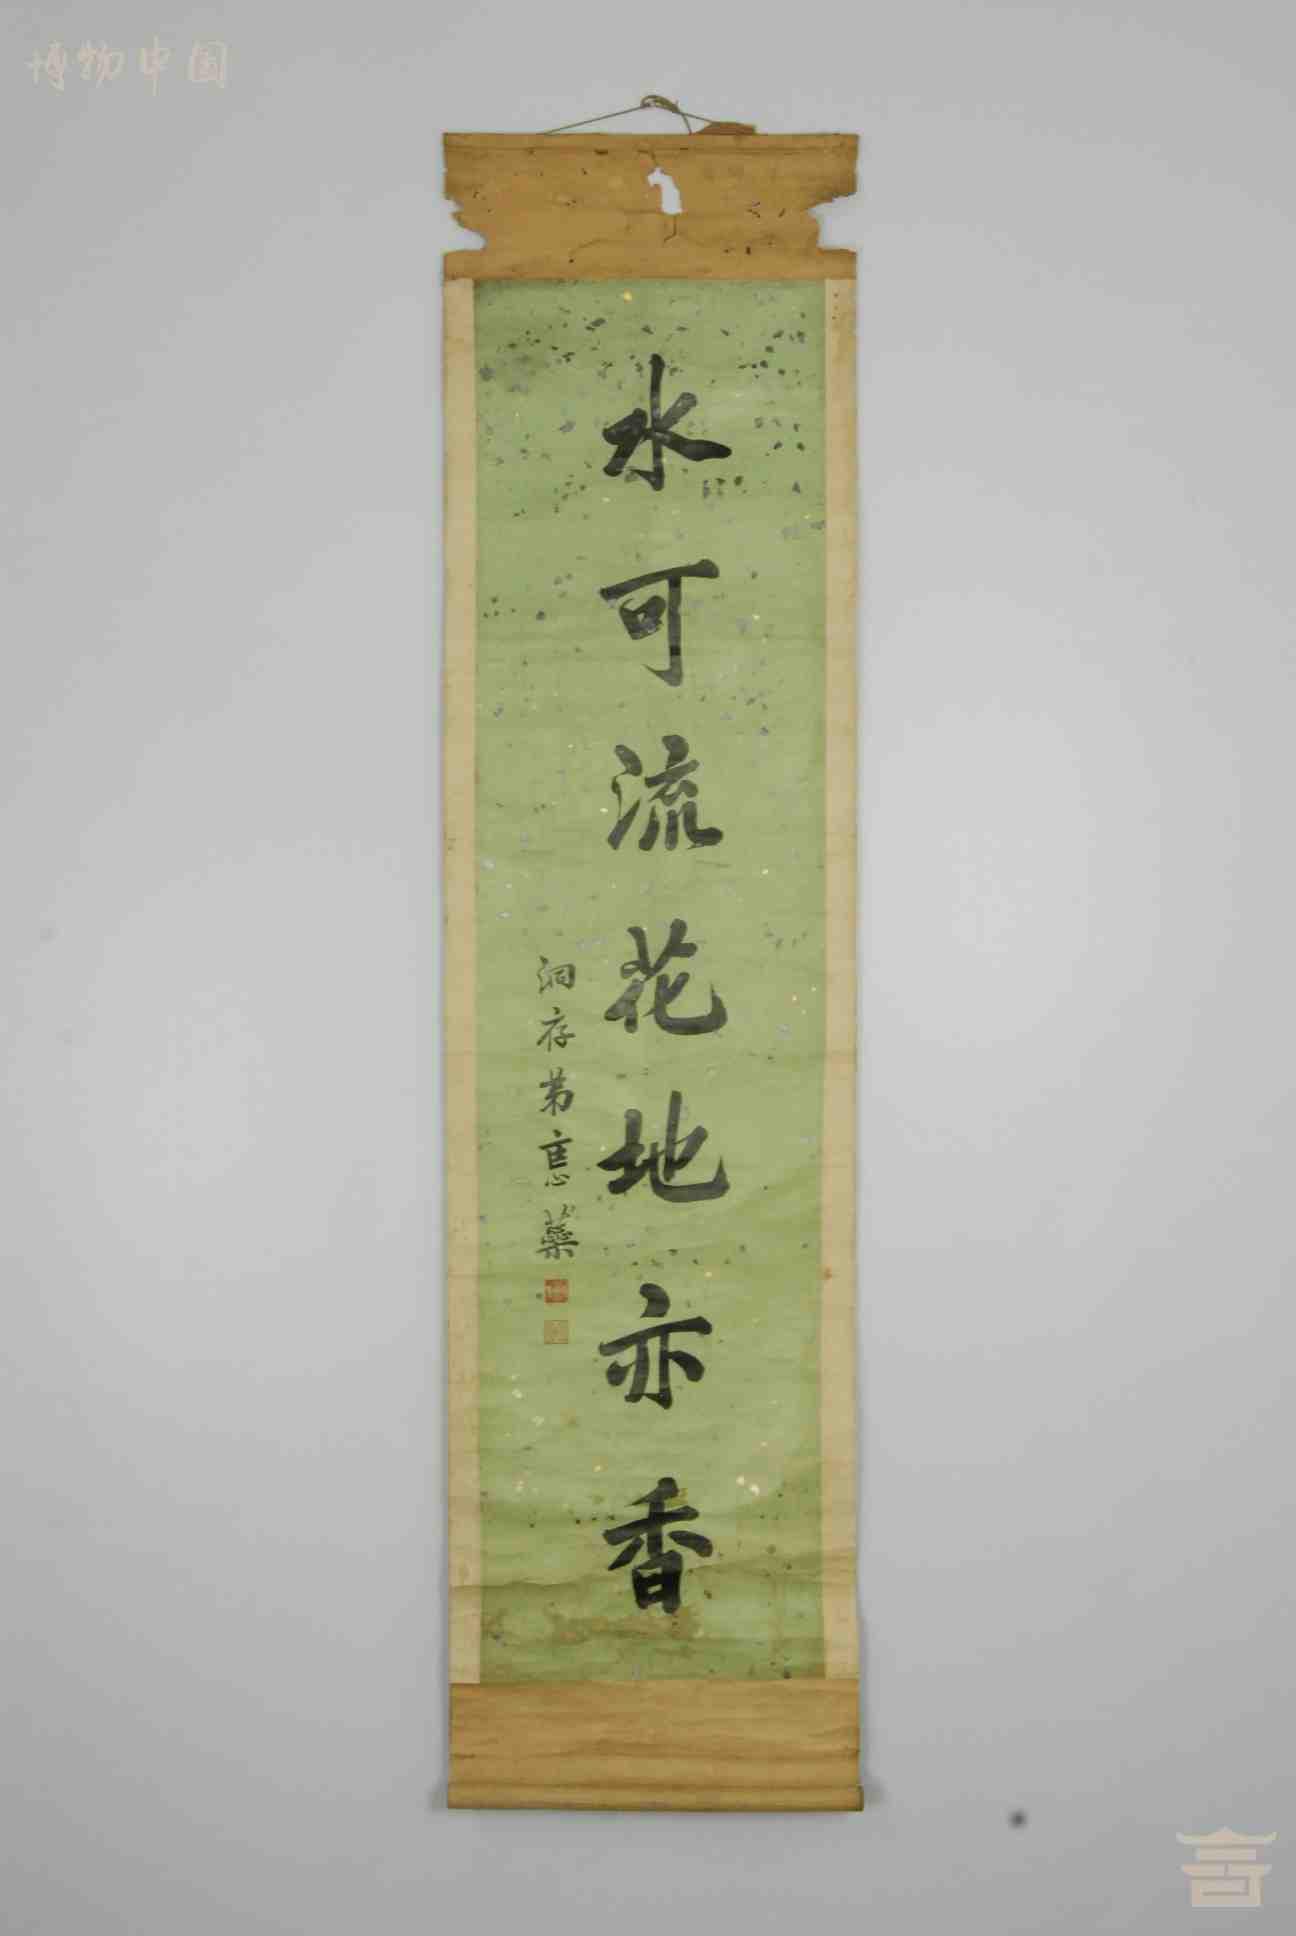 博物中国
水可流花地亦香
洞存弟惪蘂